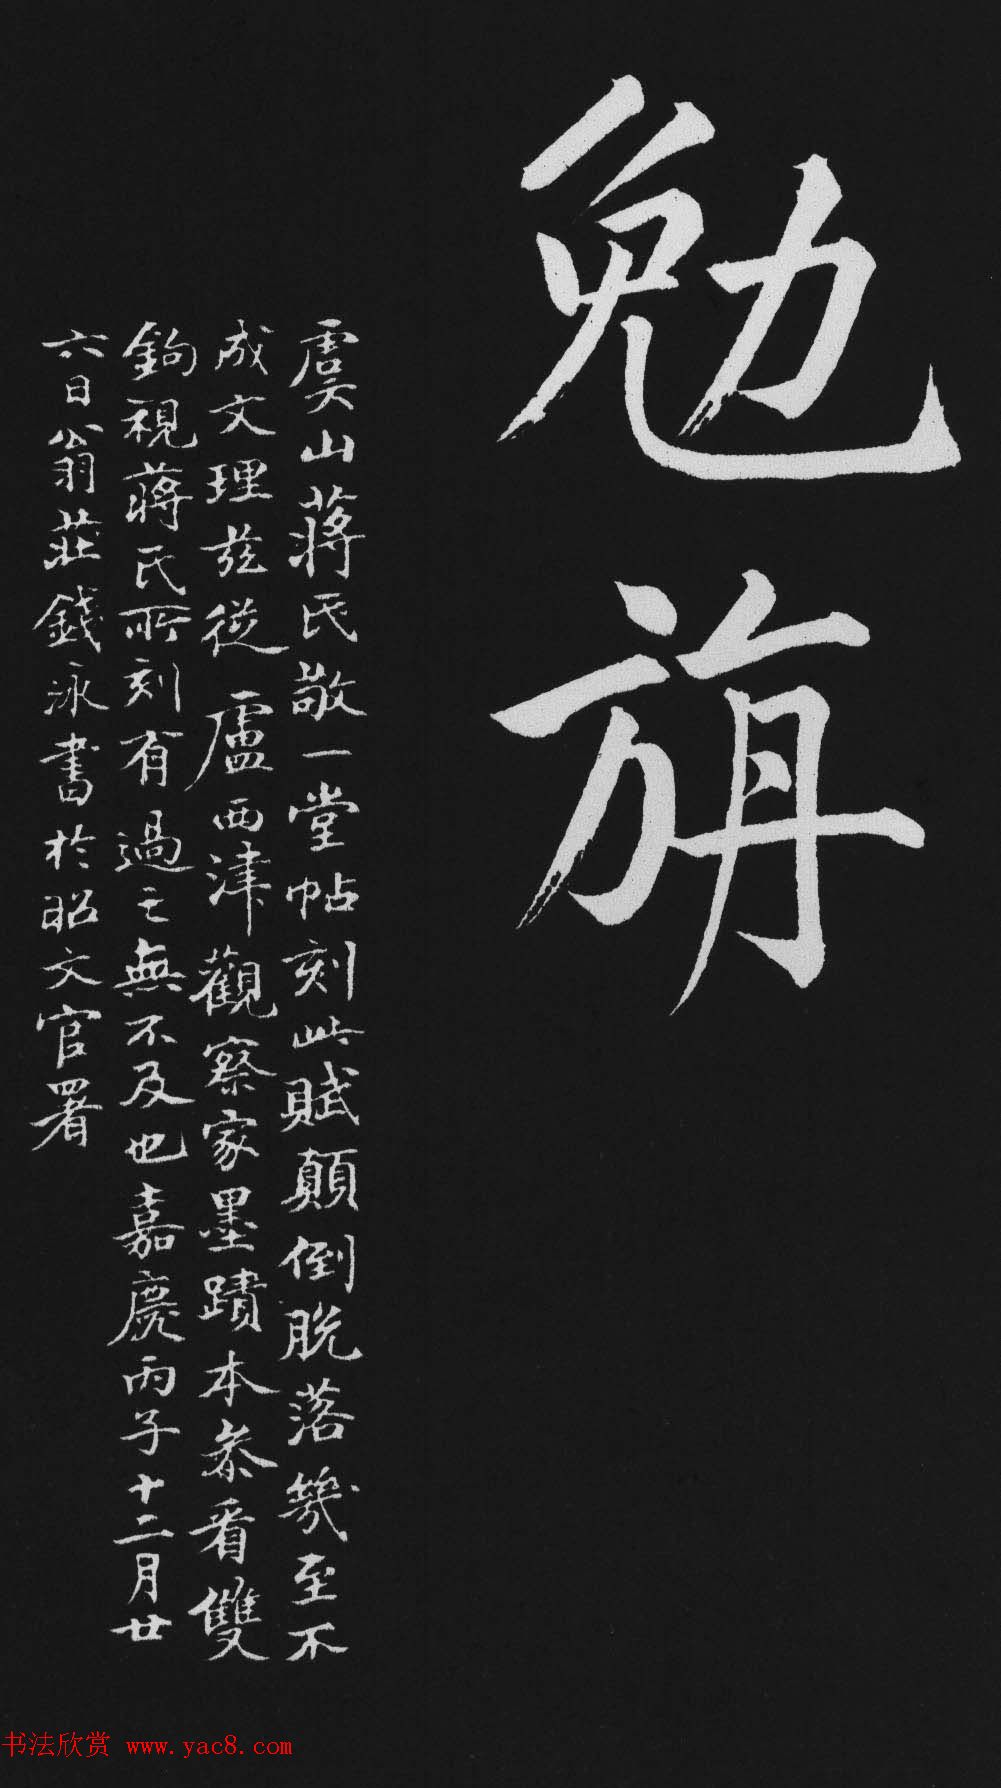 勉旃
虞山蔣氏敬一堂帖刻此賦顛倒脫落幾至不
成文理茲從盧西津觀察家墨蹟本參看雙
鉤視蔣氏所刻有過之無不及也嘉慶丙子十二月廿
六日翁莊錢泳書於昭文官署
书法欣赏 www.yac8.com